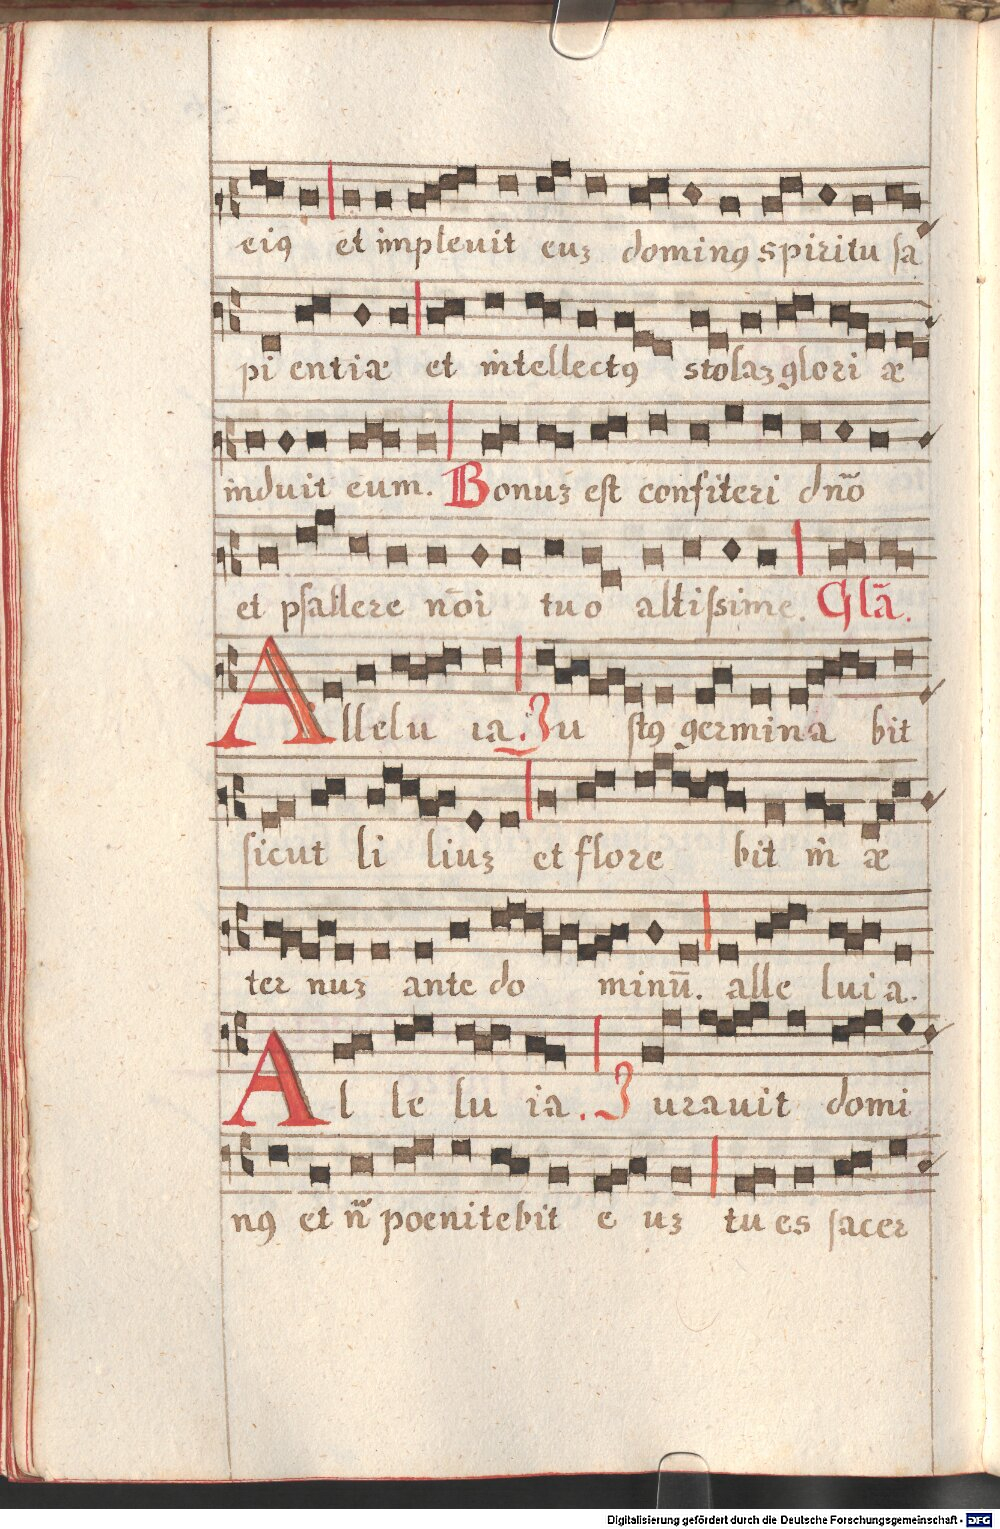 eiꝯ et impleuit euꝫ dominꝯ spiritu sa
pi entiæ et intellectꝯ stolaꝫ glori æ
induit eum. Bonuꝫ est confiteri dn̄o
et psallere no̅i tuo altissime. Gl̄a.
Allelu ia. Ju stꝯ germina bit
sicut li liuꝫ et flore bit in æ
ter nuꝫ ante do minū. alle luia.
Al le lu ia. Jurauit domi
nꝯ et n̄ poenitebit e uꝫ tu es sacer
Digitalisierung gefördert durch die Deutsche Forschungsgemeinschaft - DFG